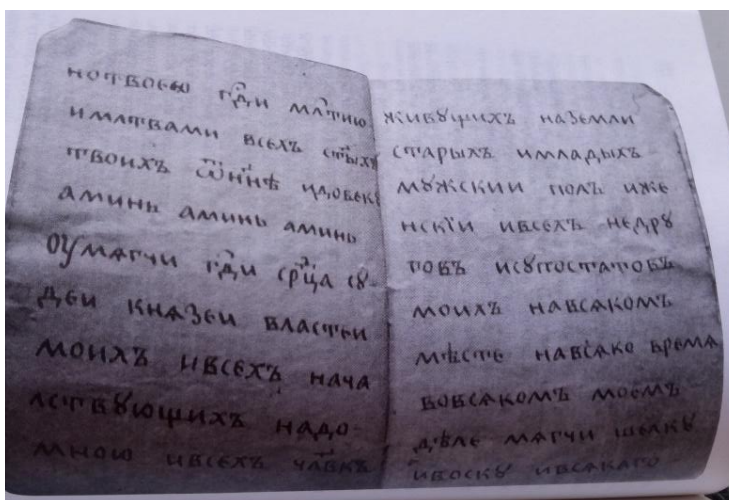 нотвоею гд҃и млⷭ҇тию
имл҃твами всехъ ст҃ыхъ
твоихъ ѿнн҃ѣ ицовекъ
аминь аминь аминь
оумѧгчи гд҃и срⷣ҇ца сꙋ
деи кнѧзеи властеи
моихъ ивсехъ нача
лствꙋющихъ надо
мною ивсехъ члв҃къ
живꙋщихъ наземли
старыхъ имладыхъ
мꙋжскии полъ иже
нскїи ивсехъ недрꙋ
говъ исꙋпостатовъ
моихъ навсѧкомъ
мѣсте навсѧко времѧ
вовсѧкомъ моемъ
дѣле мѧгчи шелкꙋ
ивоскꙋ ивсѧкаго